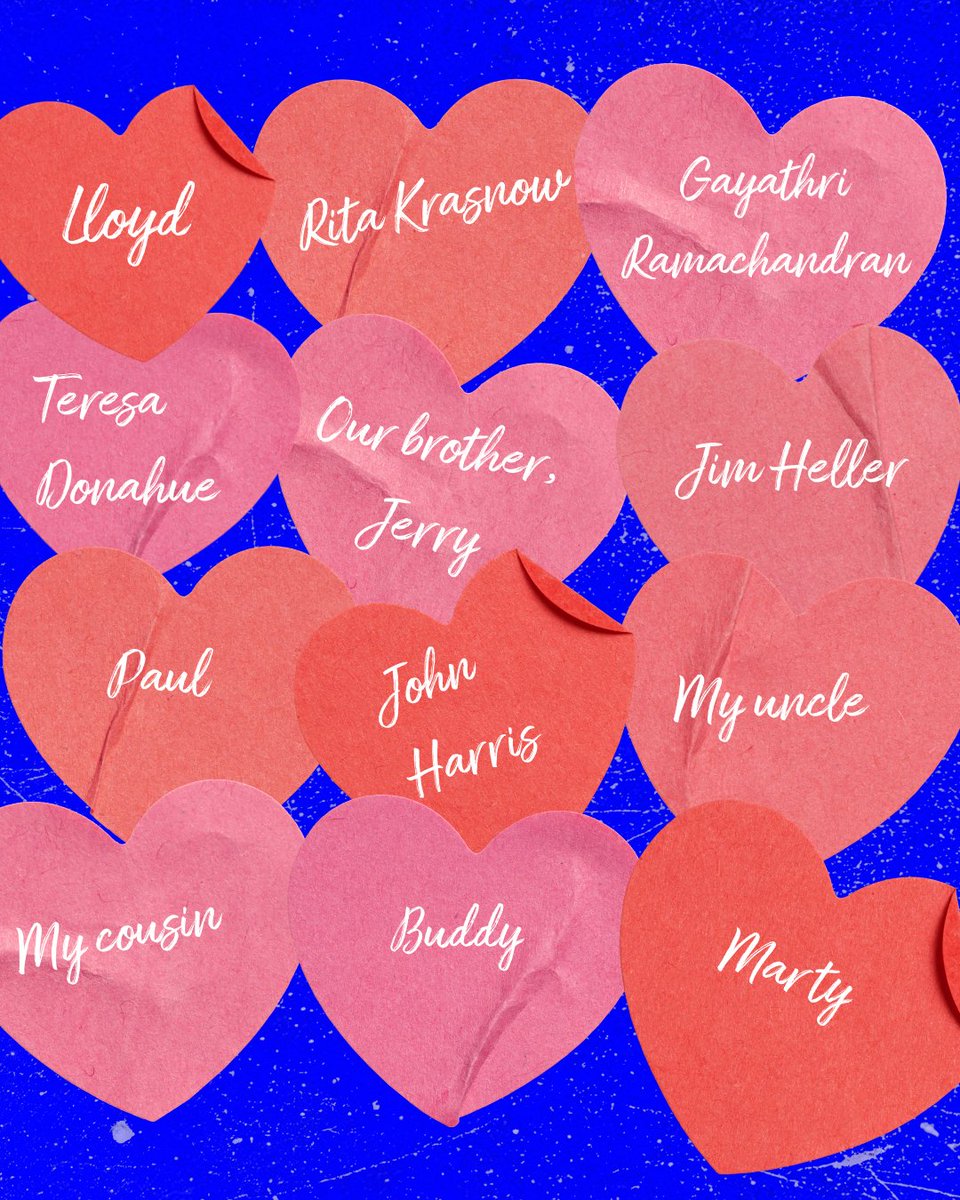 Lloyd
Rita Krasnow
Gayathri
Ramachandran
Teresa
Donahue
Our brother,
Jerry
Jim Heller
Paul
John
Harris
My uncle
My cousin
Buddy
Marty